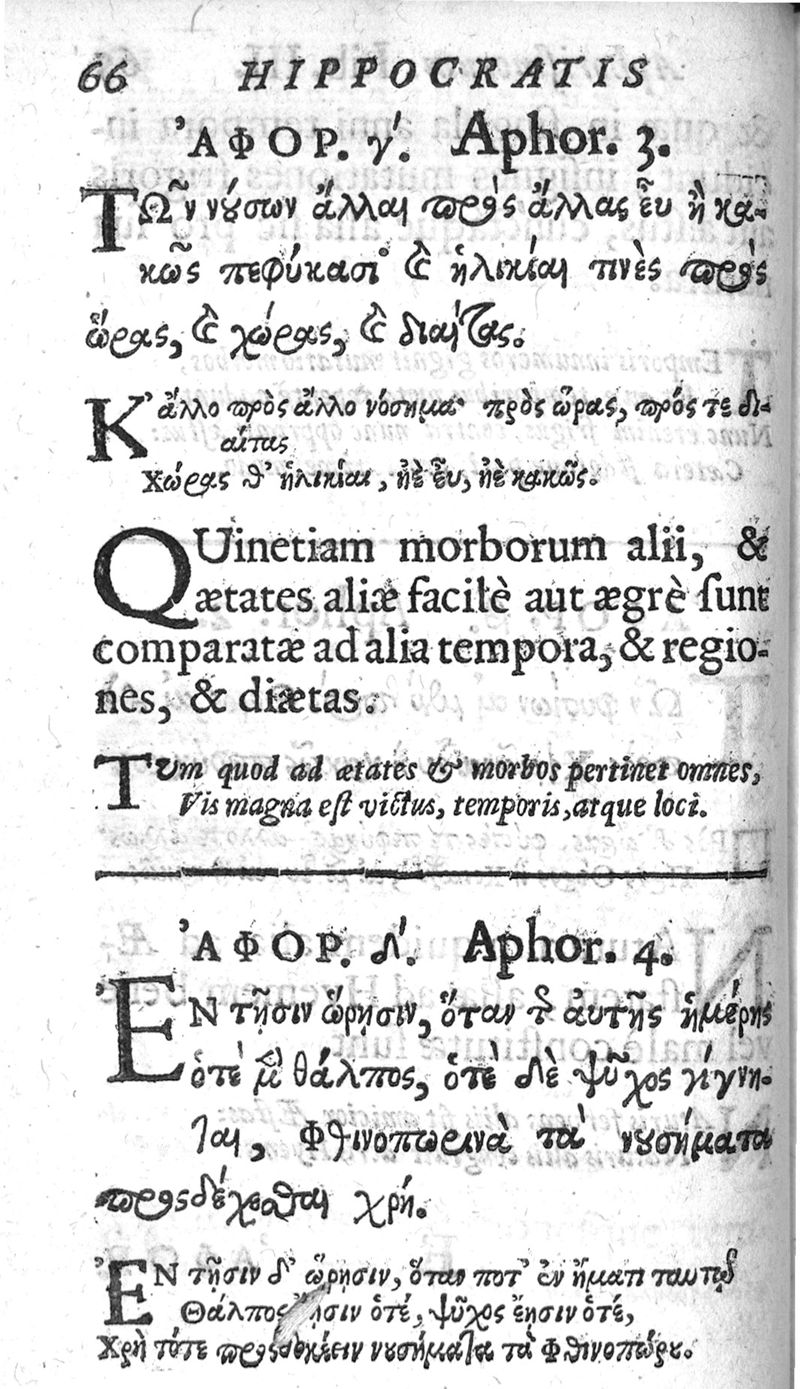 66 HIPPOCRATIS
ἈΦΟΡ. γ΄. Aphor. 3.
ΤΩ͂ν νύσων ἄλλαι πρὸς ἄλλας εὖ ἢ κα-
κῶς πεφύκασι· καὶ ἡλικίαι τινὲς πρὸς
ὥρας, καὶ χώρας, καὶ διαίτας.
Κ' ἄλλο πρὸς ἄλλο νόσημα· πρὸς ὥρας, πρός τε δι-
αίτας
Χώρας θ' ἡλικίαι, ἠὲ εὖ, ἠὲ κακῶς.
QUinetiam morborum alii, &
ætates aliæ facilè aut ægrè ſunt
comparatæ ad alia tempora, & regio-
nes, & diætas.
TUm quod ad ætates & morbos pertinet omnes,
Vis magna eſt victus, temporis, atque loci.
ἈΦΟΡ. δ΄. Aphor. 4.
ἘΝ τῇσιν ὥρῃσιν, ὅταν τ͂ αυτῆς ἡμέρης
ὁτὲ μὲν θάλπος, ὁτὲ δὲ ψῦχος γίγνη-
ται, Φθινοπωρινὰ τὰ νουσήματα
προςδέχεσθαι χρή.
ἘΝ τῇσιν δ' ὥρῃσιν, ὅταν ποτ' ἐν ἤματι ταυτῷ
Θάλπος ἔῃσιν ὁτέ, ψῦχος ἔῃσιν ὁτέ,
Χρὴ τότε προςδοκέειν νουσήματα τὰ Φθινοπώρου.